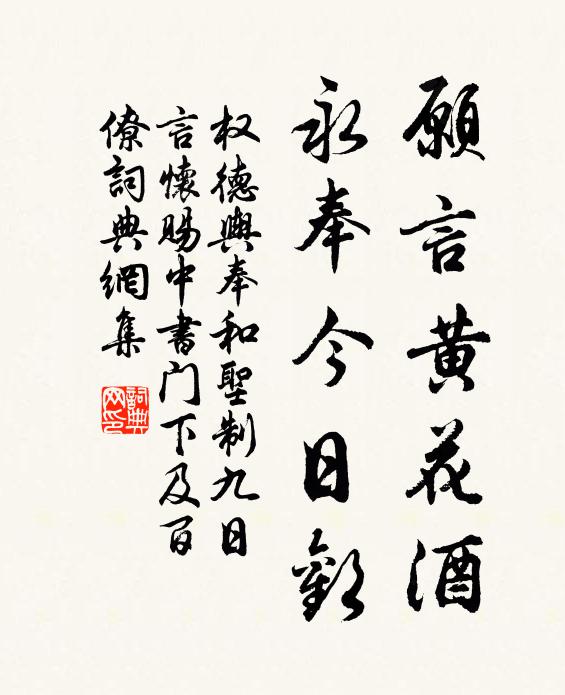 願言黄花酒
永奉今日歡
权德輿奉和聖制九日
言懷賜中書门下及百
僚詞典網集
詞典网印